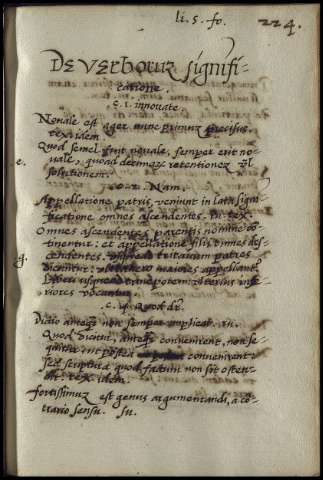 li. 5. fo. 224.
De verborum signifi-
catione.
§. 1. innovate.
Novale est ager nunc primum precisus.
tex. idem
Quod semel sunt novale, semper erit no-
vale, quoad decimarum retentionem vel
solutionem.
c. 2. Nam.
Appellatione patris veniunt in lata signi-
ficatione omnes ascendentes. tu. tex.
Omnes ascendentes parentis nomine co-
tinentur: et appellatione filii omnes des-
cendentes. usque ad tritavum patres
dicuntur: maiores appellant.
usque ad trinepotem
riores vocantur.
c. 4. Quod dr.
Dictio anteq. non semper implicat. tu.
Quod dicunt, anteq. convenirent, non se-
quitur ut postea convenirant:
sed scriptura quod factum non sit osten-
dit. tex. idem
fortissimum est genus argumentandi, a co-
trario sensu. tu.